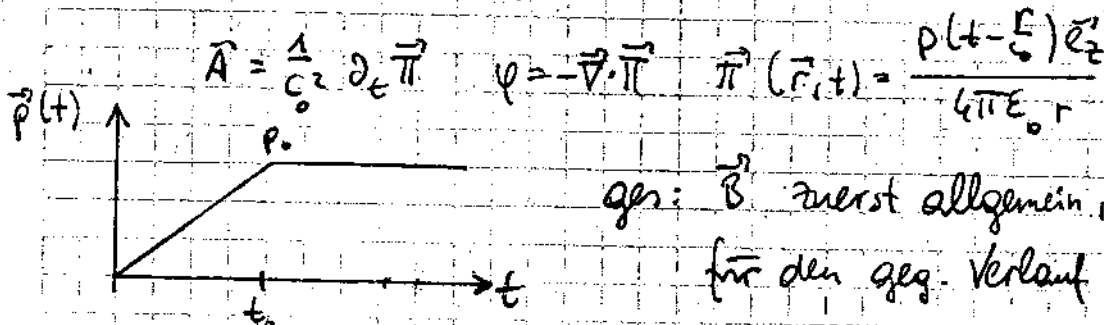 A⃗ = 1/c₀² ∂ₜ Π⃗   φ = -∇⃗·Π⃗   Π⃗ (r⃗,t) = p(t - r/c₀) e⃗_z / 4πε₀ r
p⃗(t)
p₀
ges: B⃗ zuerst allgemein,
für den geg. Verlauf
t
t₀